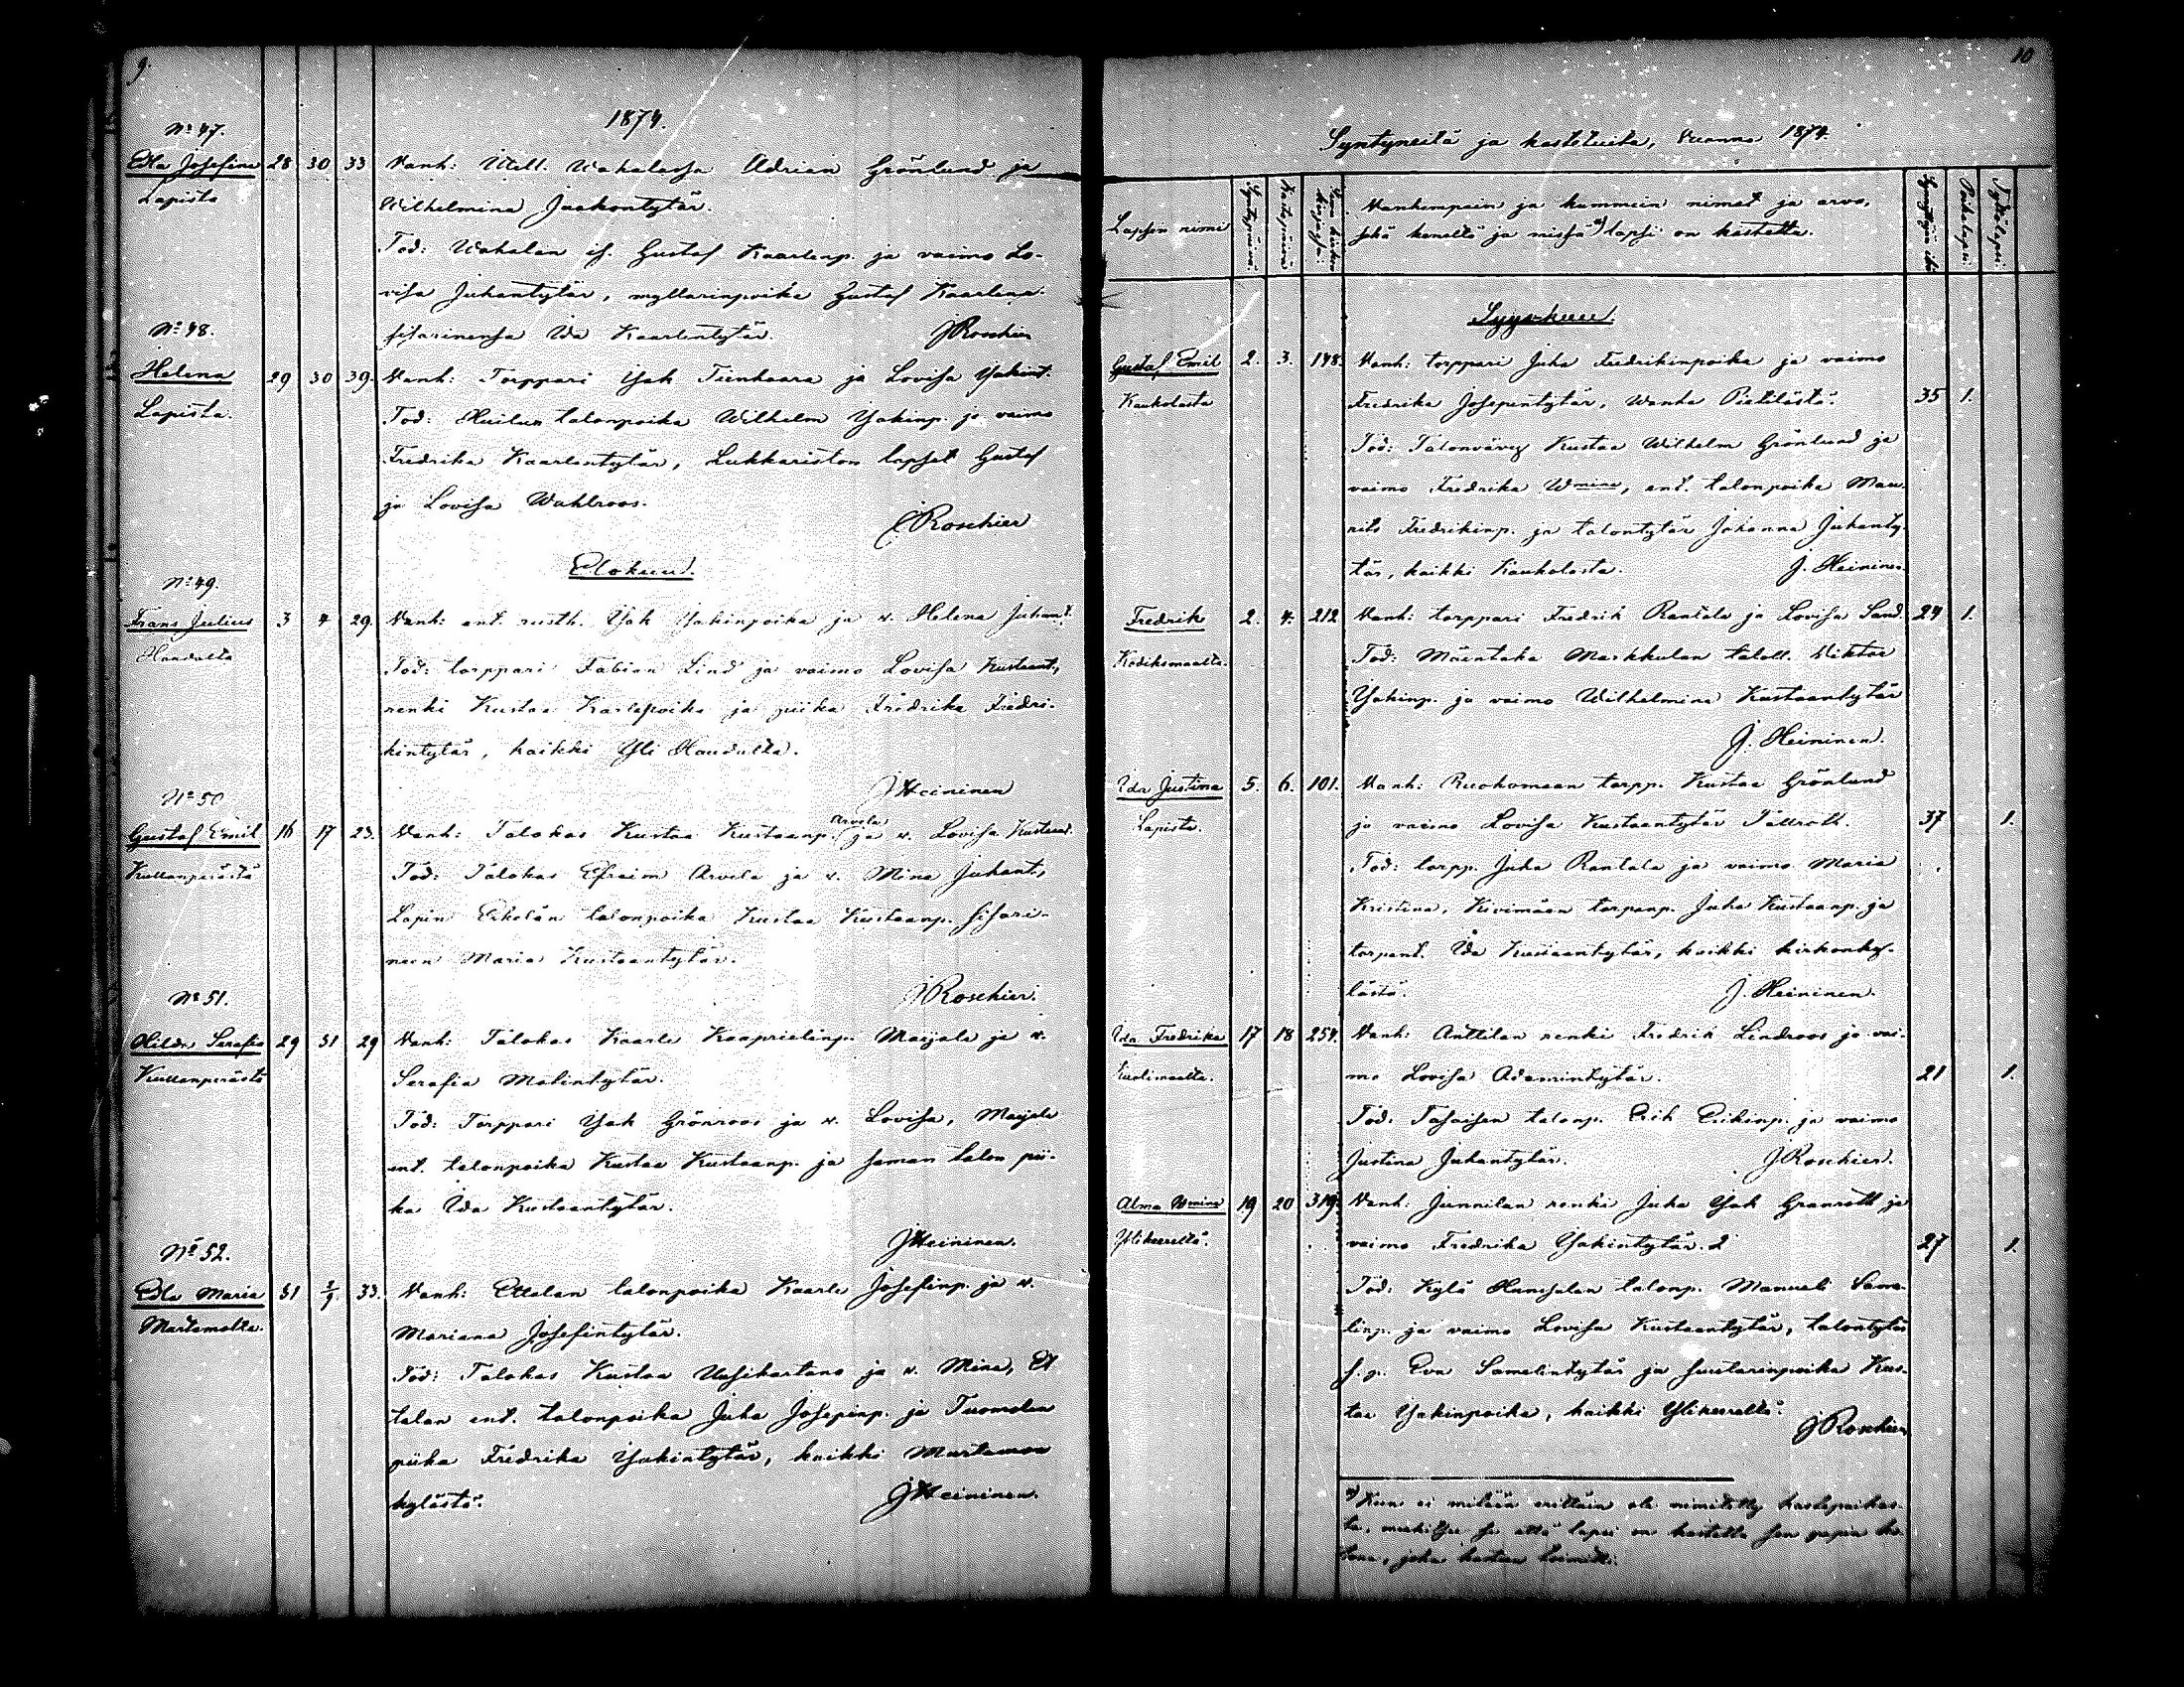 9.
1874.
No 47.
Edla Josefina 28 30 33 Vanh: Mell. Wahalassa Adrian Grönlund ja
Lapista
Wilhelmina Jaakontytär.
Tod: Wahalan is. Gustaf Kaarlenp. ja vaimo Lo-
visa Juhantytär, myllarinpoika Gustaf Kaarlenp.
No 48.
sisarinensa Ida Kaarlentytär. JRoschier
Helena 29 30 39. Vanh: Torppari Isak Tienhaara ja Lovisa Isakint.
Lapista.
Tod: Huilun talonpoika Wilhelm Isakinp. ja vaimo
Fredrika Kaarlentytär, Lukkariston lapset Gustaf
ja Lovisa Wahlroos.
JRoschier
Elokuu.
No 49.
Frans Julius 3 4 29. Vanh: ent. rusth. Isak Isakinpoika ja v. Helena Juhant.
Haudalta
Tod: torppari Fabian Lind ja vaimo Lovisa Kustaant.,
renki Kustaa Kaarlepoika ja piika Fredrika Fredri-
kintytär, kaikki Yli Haudalta.
JHeininen
No 50
Gustaf Emil 16 17 23. Vanh: Talokas Kustaa Kustaanp. Arvela ja v. Lovisa Kustaant.
Kullanperästä
Tod: Talokas Efraim Arvela ja v. Mina Juhant.,
Lapin Eskolan talonpoika Kustaa Kustaanp. sisari-
neen Maria Kustaantytär.
JRoschier.
No 51.
Hilda Serafia 29 31 29 Vanh: Talokas Kaarle Kaaprielinp. Maijala ja v.
Kullanperästä
Serafia Matintytär.
Tod: Torppari Isak Grönroos ja v. Lovisa, Maijala
ent. talonpoika Kustaa Kustaanp. ja saman talon pii-
ka Ida Kustaantytär.
JHeininen.
No 52.
Edla Maria 31 2/9. 33. Vanh: Ettalan talonpoika Kaarle Josefinp. ja v.
Martamolta.
Mariana Josefintytär.
Tod: Talokas Kustaa Uusikartano ja v. Mina, Et
talan ent. talonpoika Juha Josepinp. ja Tuomolan
piika Fredrika Isakintytär, kaikki Martamon
kylästä.
JHeininen.
10
Syntyneitä ja kastetuita, vuonna 1874
Lapsen nimi
Syntymäpäivä.
Kastepäivä
Vanhempain ja kummein nimet ja arvo,
sekä keneltä ja missä *) lapsi on kastettu.
Synnyttäjän ikä
Poikalapsi
Tyttölapsi.
Syyskuu.
Gustaf Emil 2. 3. 148. Vanh: torppari Juha Fredrikinpoika ja vaimo
Kaukolasta
Fredrika Josepintytär, Wanha Pietilästä. 35 1.
Tod: Talonvävy Kustaa Wilhelm Grönlund ja
vaimo Fredrika Wmina, ent. talonpoika Mau-
rits Fredrikinp. ja talontytär Johanna Juhanty-
tär, kaikki Kaukolasta. J. Heininen.
Fredrik 2. 4. 212 Vanh: torppari Fredrik Rantala ja Lovisa Sand. 24 1.
Kodiksmaalta.
Tod: Mäentaka Markkulan taloll. Viktor
Isakinp. ja vaimo Wilhelmina Kustaantytär
J. Heininen.
Ida Justina 5. 6. 101. Vanh: Ruohomaan torpp. Kustaa Grönlund
Lapista.
ja vaimo Lovisa Kustaantytär Tällroth. 37 1.
Tod: torpp. Juha Rantala ja vaimo Maria
Kristina, Kivimäen torpanp. Juha Kustaanp. ja
torpant. Ida Kustaantytär, kaikki kirkonky-
lästä. J. Heininen.
Ida Fredrika 17 18 254. Vanh: Anttilan renki Fredrik Lindroos ja vai-
mo Lovisa Adamintytär. 21 1.
Tod: Tasaisen talonp. Erik Erikinp. ja vaimo
Justina Juhantytär. JRoschier.
Alma Wmina 19 20 319. Vanh: Junnilan renki Juha Isak Granroth ja
Ylikierrelta.
vaimo Fredrika Isakintytär. 2 27 1.
Tod: Kylä Hannsalan talonp. Manueli Same-
linp. ja vaimo Lovisa Kustaantytär, talontytär
s.p. Eva Samelintytär ja suutarinpoika Kus-
taa Isakinpoika, kaikki
JRoschier
*) Kun ei milään erittäin ole nimitetty kastepaikas-
ta, merkitsee se että lapsi on kastettu sen papin ko-
tona, joka kasteen toimitti.